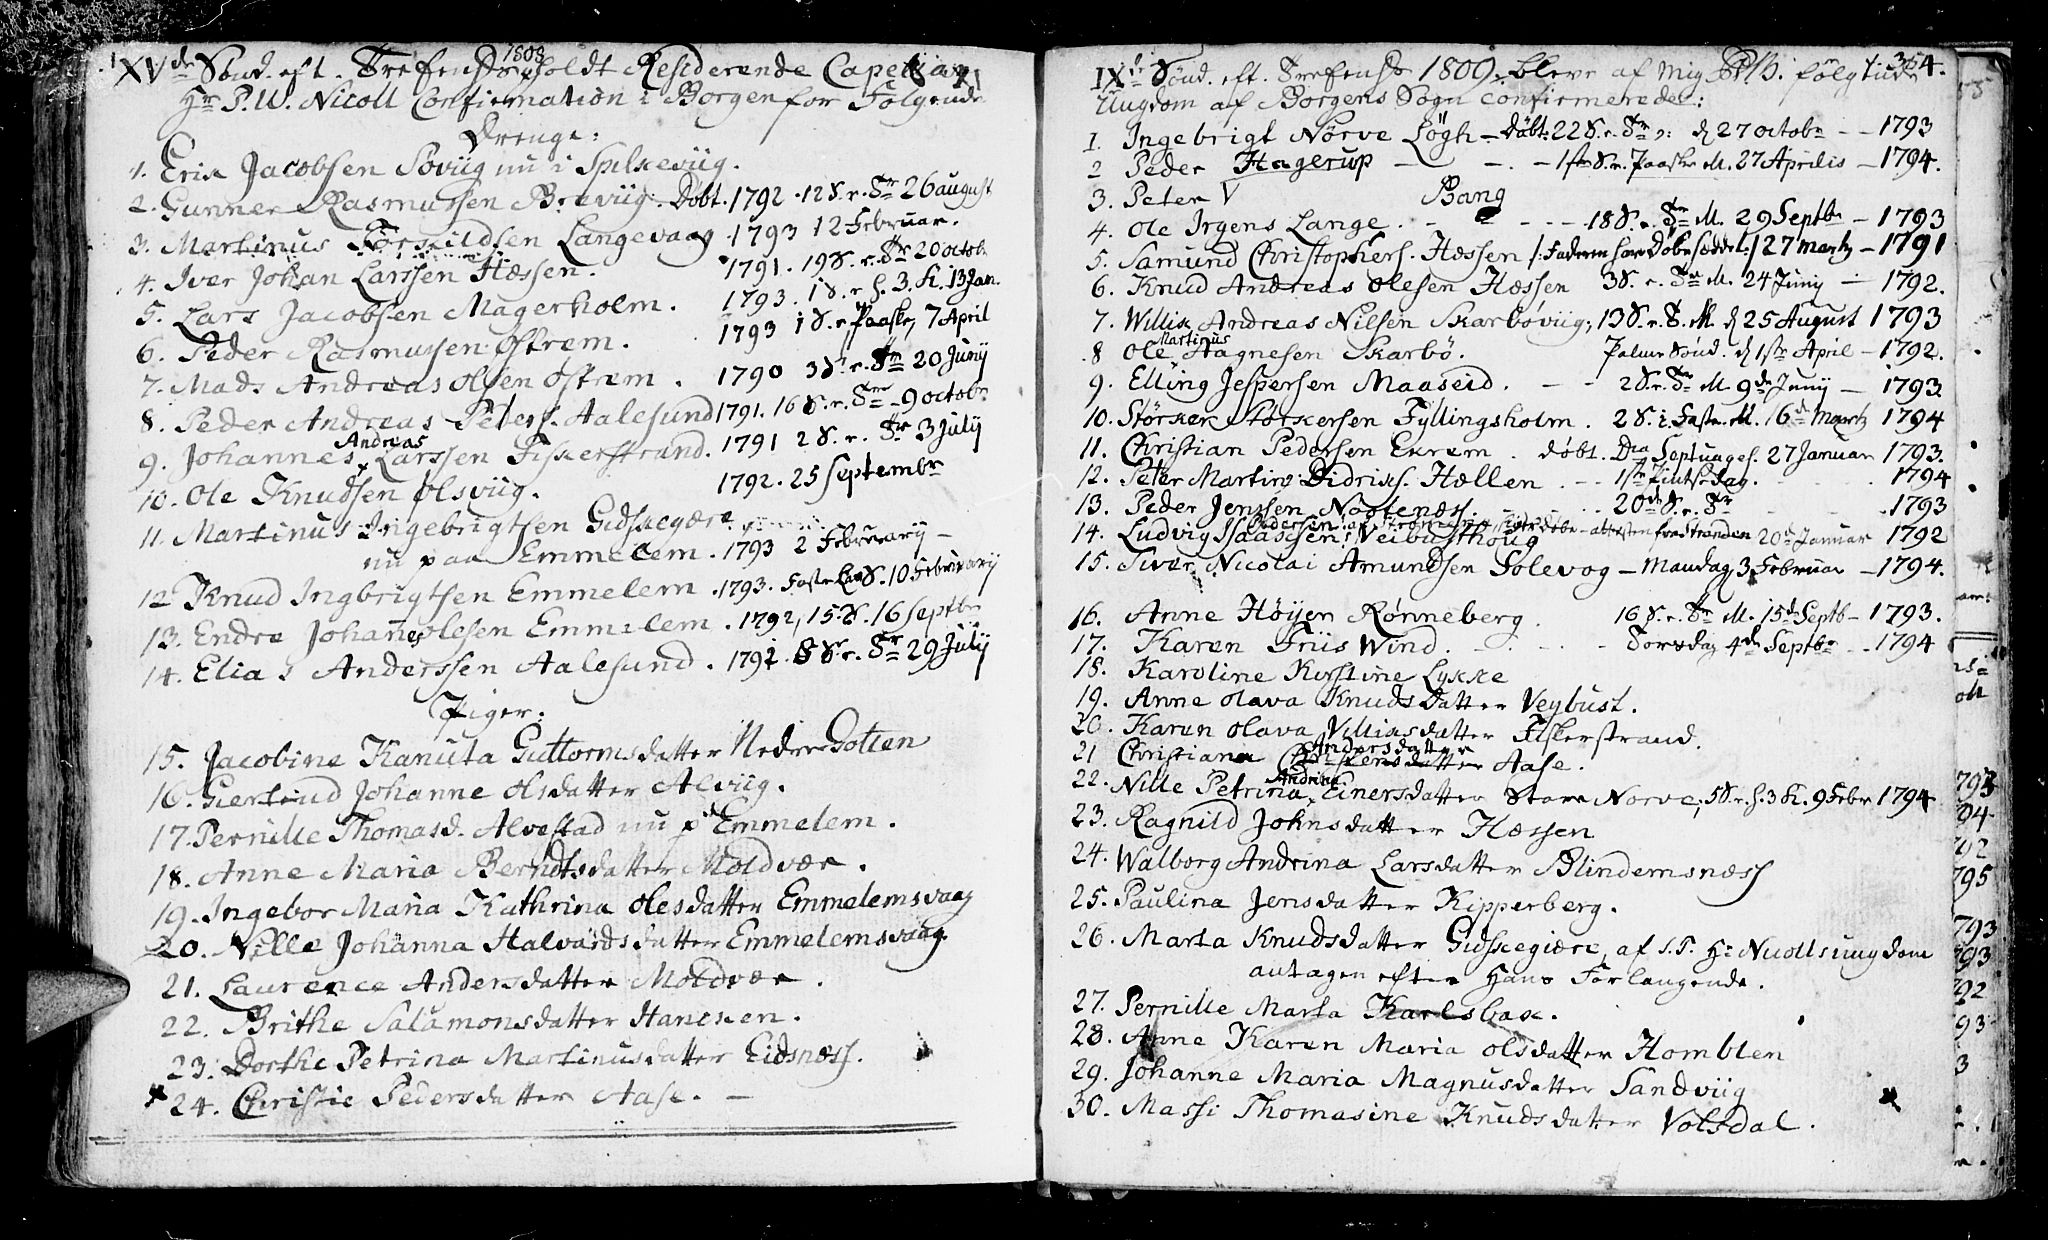 XVde Sønd. eft. Trefoldh 1808 holdt Residerende Capellan
Hr P. U. Nicoll Confirmation i Borgen for Følgende
Drenge:
1. Erik Jacobsen Søviig nu i Spilkeviig.
2. Gunner Rasmussen Breviig. Døbt. 1792. 12 S. r. Tr 26 august
3. Martinus Torkildsen Langevaag. 1793 12 Februar.
4. Iver Johan Larssen Hæssen. 1791. 19 S. r. Tr 20 octobr
5. Lars Jacobsen Magerholm. 1793. 1 S. r. h. 3. K. 13 Jan.
6. Peder Rasmussen Østrem. 1793 1 S. r. Paaske, 7 April
7. Mads Andreas Olsen Østrem. 1790 3 S. r. Tr 20 Junij
8. Peder Andreas Peders. Aalesund 1791. 16 S. r. Tr 9 octobr
9. Johannes Andreas Larssen Fiskerstrand. 1791 2 S. r. Tr 3 Julij
10. Ole Knudsen Olsviig. 1792. 25 Septembr
11. Martinus Ingebrigtsen Gidskegiære
nu paa Emmelem. 1793 2 Februarij
12 Knud Ingbrigtsen Emmelem. 1793. Faste Lav S. 10 Februarij
13. Endre Johannes Olesen Emmelem. 1792, 15. S. 16 Septbr
14. Elias Anderssen Aalesund. 1792. 8 S. r. Tr 29 Julij
Piger:
15. Jacobine Kanuta Guttormsdatter Neder Dotten
16. Giertrud Johanne Olsdatter Alviig.
17. Pernille Thomasd. Alvestad nu p Emmelem.
18. Anne Maria Berndtsdatter Moldvær.
19. Ingebor Maria Kathrina Olesdatter Emmelemsvaag
20. Nille Johanna Halvardsdatter Emmelemsvaag.
21. Laurence Andersdatter Moldvær.
22. Brithe Salamonsdatter Hancken.
23. Dorthe Petrina Martinusdatter Eidsnæss.
24. Christie Pedersdatter Aase.
364.
IXde Sønd. eft. Trefoldh 1809. bleve af mig følgende
Ungdom af Borgens Sogn confirmerede:
1. Ingebrigt Nørve Løgh Døbt 22 S. r. Tr d 27 octobr 1793
2 Peder Hagerup 1ste S. r. Paaske M. 27 Aprilis 1794.
3. Peter V Bang
4. Ole Irgens Lange. 18 S. r. Tr M. 29 Septbr 1793
5. Samund Christophers. Hæssen /: Faderen har Døbe Seddel:/ 27 Martz 1791
6. Knud Andreas Olesen Hæssen 3 S. r. Tr M. 24 Junij 1792.
7. Willik Andreas Nilsen Skarbøviig, 13 S. r. T. M. d 25 August 1793
8 Ole Martinus Hagnesen Skarbø. Palme Sønd. d 1ste April 1792.
9. Elling Jespersen Maaseid. 2 S. r. Tr M 9de Junij 1793.
10. Størker Størkersen Fyllingsholm. 2 S. i Faste M. 16de Martz 1794
11. Christian Pedersen Ekrem. døbt. Dca Septuages. 27 Januar 1793.
12. Peter Martin Didriks. Hællen 1ste Pintse Dag. 1794
13. Peder Jenssen Nøotenæss. 20de S. r. Tr 1793
14. Ludvig Isaacssen Veibusthoug 20de Januar 1792
15. Siver Nicolai Amundsen Solevog Mandag 3 Februar 1794.
16. Anne Høyer Rønneberg. 16 S. r. Tr M. 15de Septb 1793.
17. Karen Friis Wind. Torsdag 4de Septbr 1794
18. Karoline Kirstine Lykke
19. Anne Olava Knudsdatter Veybust.
20. Karen Olava Williksdatter Fiskerstrand.
21 Christiana Andersdatter Aase.
22. Nille Petrina Andrina Einersdatter Store Nørve, 5 S. r. h. 3 K. 9 Febr 1794
23. Ragnild Johnsdatter Hæssen
24. Walborg Andrina Larsdatter Blindemsnæss
25. Paulina Jensdatter Kipperberg.
26. Marta Knudsdatter Gidskegiære, af S. T. Hr Nicolls ungdom
antagen efter Hans Forlangende.
27. Pernille Marta Karlsbak.
28. Anne Karen Maria Olsdatter Homblen
29. Johanne Maria Magnusdatter Sandviig
30. Massi Thomasine Knudsdatter Volsdal.